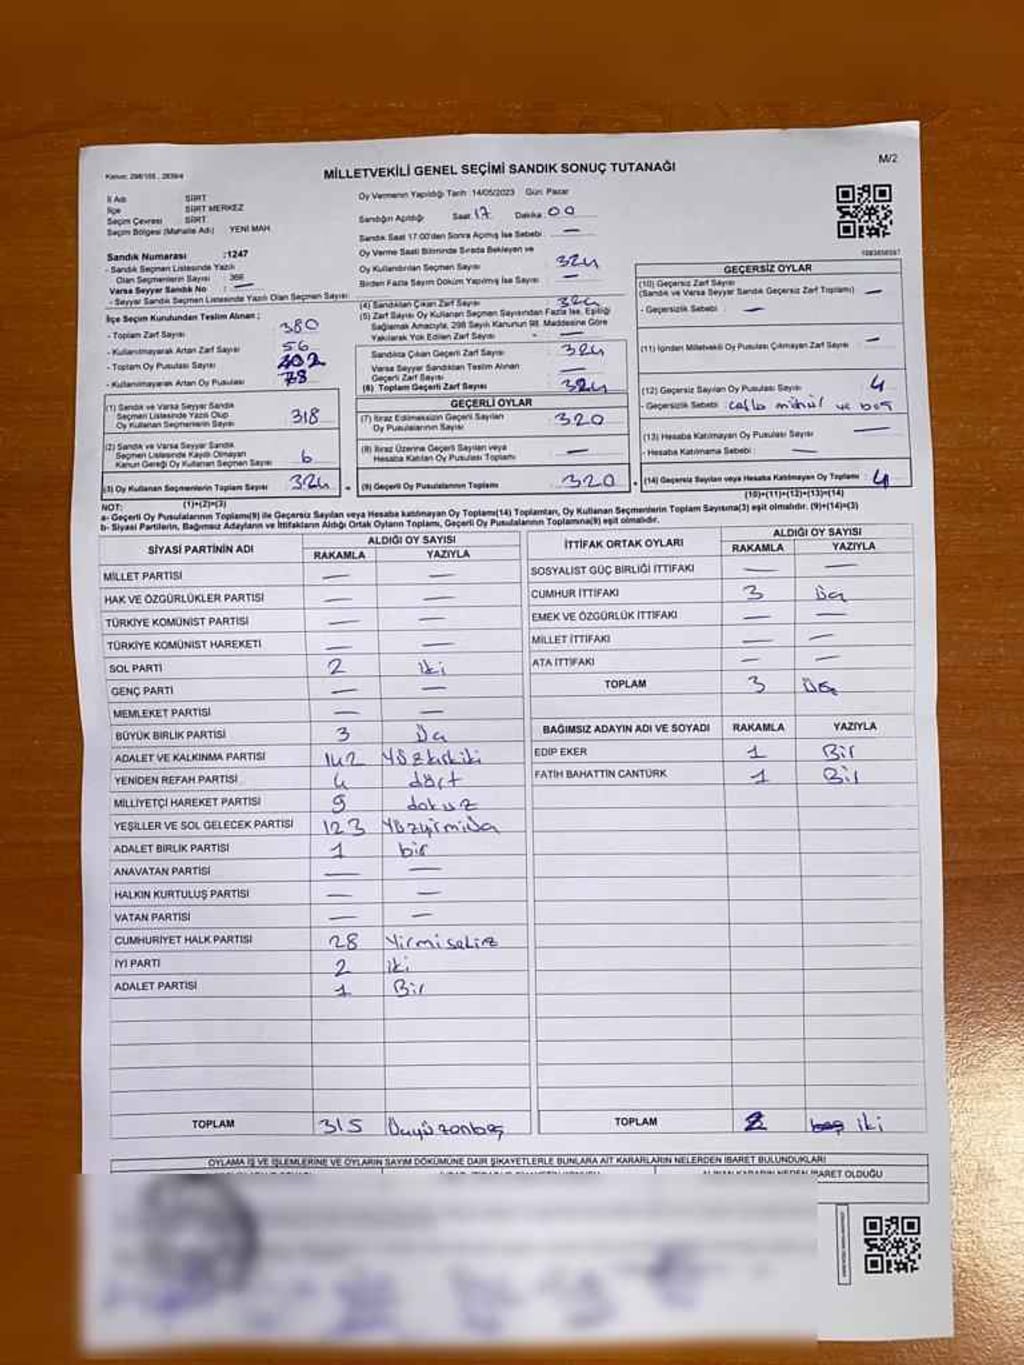 M/2
Kanun: 298/105 , 2839/4
MİLLETVEKİLİ GENEL SEÇİMİ SANDIK SONUÇ TUTANAĞI
İl Adı SİİRT
İlçe SİİRT MERKEZ
Seçim Çevresi SİİRT
Seçim Bölgesi (Mahalle Adı) YENİ MAH
Sandık Numarası :1247
- Sandık Seçmen Listesinde Yazılı
Olan Seçmenlerin Sayısı 366
Varsa Seyyar Sandık No : —
- Seyyar Sandık Seçmen Listesinde Yazılı Olan Seçmen Sayısı
İlçe Seçim Kurulundan Teslim Alınan ;
- Toplam Zarf Sayısı 380
- Kullanılmayarak Artan Zarf Sayısı 56
- Toplam Oy Pusulası Sayısı 402
- Kullanılmayarak Artan Oy Pusulası 78
(1) Sandık ve Varsa Seyyar Sandık
Seçmen Listesinde Yazılı Olup
Oy Kullanan Seçmenlerin Sayısı 318
(2) Sandık ve Varsa Seyyar Sandık
Seçmen Listesinde Kayıtlı Olmayan
Kanun Gereği Oy Kullanan Seçmen Sayısı 6
(3) Oy Kullanan Seçmenlerin Toplam Sayısı 324
(1)+(2)=(3)
Oy Vermenin Yapıldığı Tarih 14/05/2023 Gün: Pazar
Sandığın Açıldığı Saat: 17 Dakika: 00
Sandık Saat 17:00'den Sonra Açılmış İse Sebebi : —
Oy Verme Saati Bitiminde Sırada Bekleyen ve
Oy Kullandırılan Seçmen Sayısı 324
Birden Fazla Sayım Döküm Yapılmış İse Sayısı : —
(4) Sandıktan Çıkan Zarf Sayısı 324
(5) Zarf Sayısı Oy Kullanan Seçmen Sayısından Fazla İse, Eşitliği
Sağlamak Amacıyla, 298 Sayılı Kanunun 98. Maddesine Göre
Yakılarak Yok Edilen Zarf Sayısı —
Sandıkta Çıkan Geçerli Zarf Sayısı 324
Varsa Seyyar Sandıktan Teslim Alınan
Geçerli Zarf Sayısı —
(6) Toplam Geçerli Zarf Sayısı 324
GEÇERLİ OYLAR
(7) İtiraz Edilmeksizin Geçerli Sayılan
Oy Pusulalarının Sayısı 320
(8) İtiraz Üzerine Geçerli Sayılan veya
Hesaba Katılan Oy Pusulası Toplamı —
(9) Geçerli Oy Pusulalarının Toplamı 320
GEÇERSİZ OYLAR
(10) Geçersiz Zarf Sayısı
(Sandık ve Varsa Seyyar Sandık Geçersiz Zarf Toplamı) —
- Geçersizlik Sebebi : —
(11) İçinden Milletvekili Oy Pusulası Çıkmayan Zarf Sayısı —
(12) Geçersiz Sayılan Oy Pusulası Sayısı 4
- Geçersizlik Sebebi mühür ve boş
(13) Hesaba Katılmayan Oy Pusulası Sayısı —
- Hesaba Katılmama Sebebi : —
(14) Geçersiz Sayılan veya Hesaba Katılmayan Oy Toplamı 4
(10)+(11)+(12)+(13)=(14)
NOT:
a- Geçerli Oy Pusulalarının Toplamı(9) ile Geçersiz Sayılan veya Hesaba katılmayan Oy Toplamı(14) Toplamları, Oy Kullanan Seçmenlerin Toplam Sayısına(3) eşit olmalıdır. (9)+(14)=(3)
b- Siyasi Partilerin, Bağımsız Adayların ve İttifakların Aldığı Ortak Oyların Toplamı, Geçerli Oy Pusulalarının Toplamına(9) eşit olmalıdır.
SİYASİ PARTİNİN ADI ALDIĞI OY SAYISI
RAKAMLA YAZIYLA
MİLLET PARTİSİ — —
HAK VE ÖZGÜRLÜKLER PARTİSİ — —
TÜRKİYE KOMÜNİST PARTİSİ — —
TÜRKİYE KOMÜNİST HAREKETİ — —
SOL PARTİ 2 iki
GENÇ PARTİ — —
MEMLEKET PARTİSİ — —
BÜYÜK BİRLİK PARTİSİ 3 Üç
ADALET VE KALKINMA PARTİSİ 142 Yüzkırkiki
YENİDEN REFAH PARTİSİ 4 dört
MİLLİYETÇİ HAREKET PARTİSİ 9 dokuz
YEŞİLLER VE SOL GELECEK PARTİSİ 123 Yüzyirmiüç
ADALET BİRLİK PARTİSİ 1 bir
ANAVATAN PARTİSİ — —
HALKIN KURTULUŞ PARTİSİ — —
VATAN PARTİSİ — —
CUMHURİYET HALK PARTİSİ 28 Yirmisekiz
İYİ PARTİ 2 iki
ADALET PARTİSİ 1 Bir
TOPLAM 315 Üçyüzonbeş
İTTİFAK ORTAK OYLARI ALDIĞI OY SAYISI
RAKAMLA YAZIYLA
SOSYALİST GÜÇ BİRLİĞİ İTTİFAKI — —
CUMHUR İTTİFAKI 3 Üç
EMEK VE ÖZGÜRLÜK İTTİFAKI — —
MİLLET İTTİFAKI — —
ATA İTTİFAKI — —
TOPLAM 3 Üç
BAĞIMSIZ ADAYIN ADI VE SOYADI RAKAMLA YAZIYLA
EDİP EKER 1 Bir
FATİH BAHATTİN CANTÜRK 1 Bir
TOPLAM 2 iki
OYLAMA İŞ VE İŞLEMLERİNE VE OYLARIN SAYIM DÖKÜMÜNE DAİR ŞİKAYETLERLE BUNLARA AİT KARARLARIN NELERDEN İBARET BULUNDUKLARI